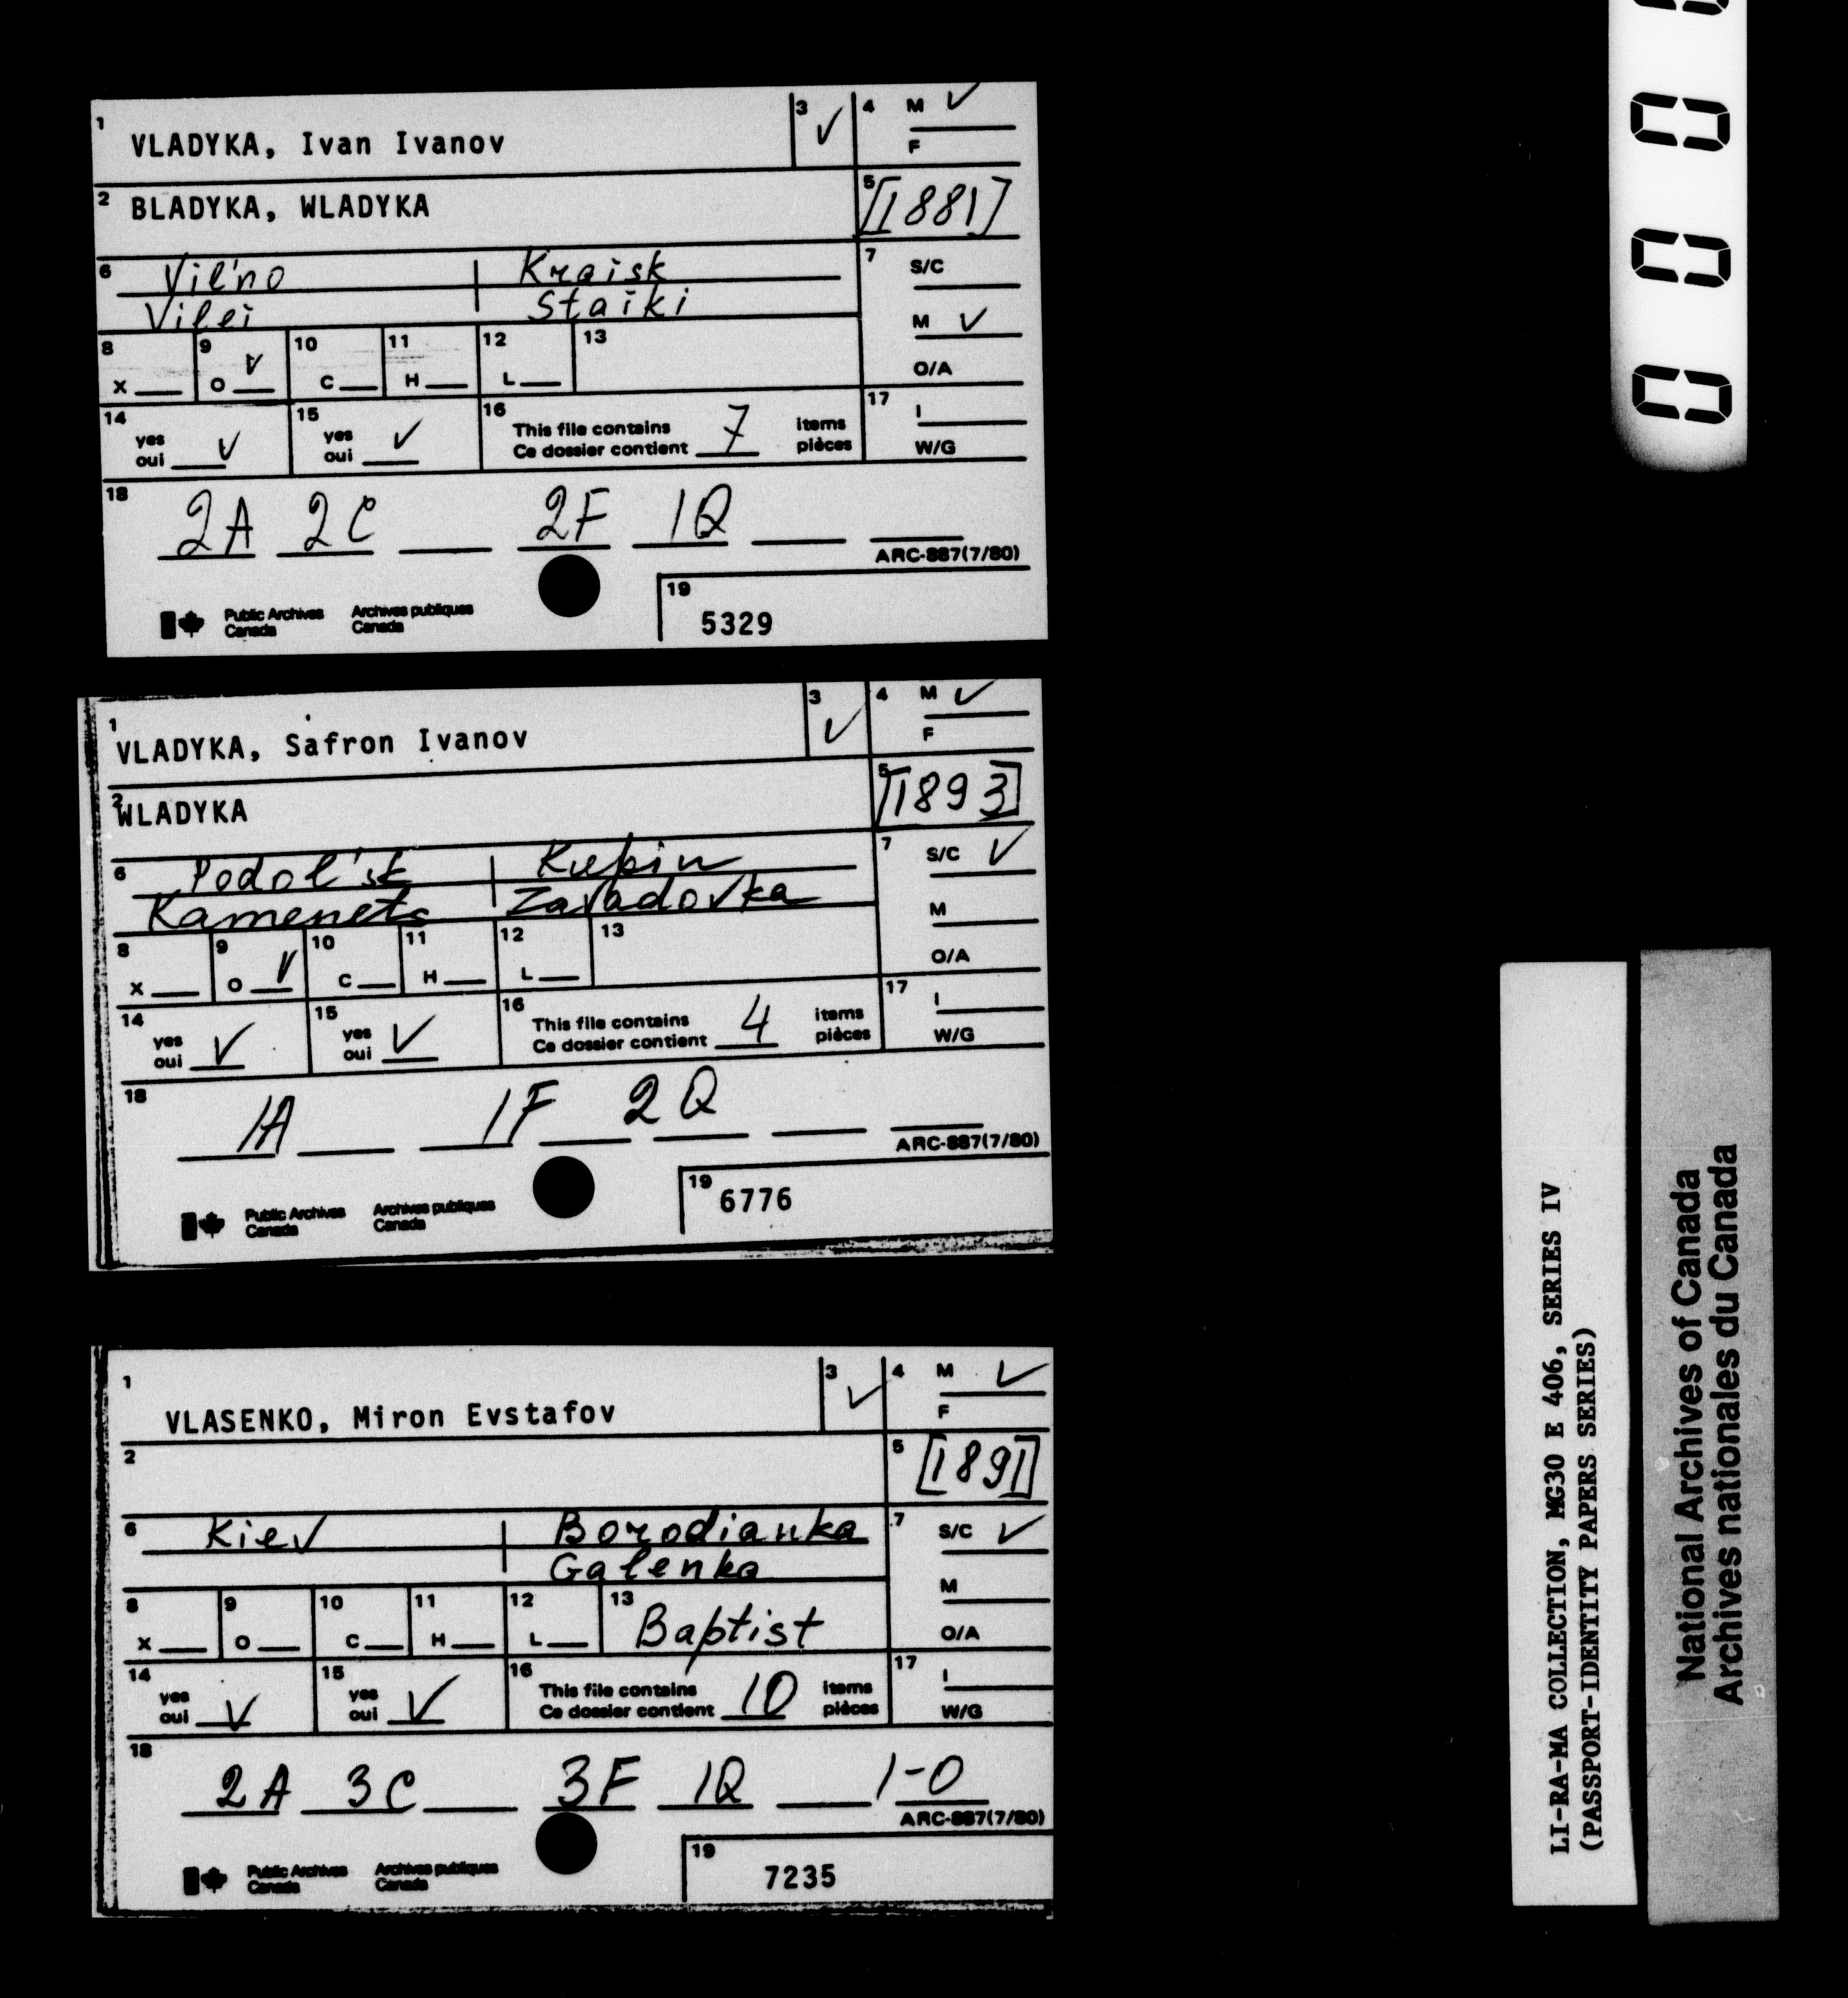 1 VLADYKA, Ivan Ivanov
3 ✓
4 M ✓
F
2 BLADYKA, WLADYKA
5 [1881]
6 Vil'no Kraisk
Vilei Staiki
7 S/C
M ✓
O/A
8 X 9 O ✓ 10 C 11 H 12 L 13
14 yes oui ✓ 15 yes oui ✓
16 This file contains 7 items
Ce dossier contient pièces
17 I
W/G
18 2A 2C 2F 1Q
ARC-887(7/80)
Public Archives Archives publiques
Canada Canada
19 5329
1 VLADYKA, Safron Ivanov
3 ✓
4 M ✓
F
2 WLADYKA
5 [1893]
6 Podol'sk Kupin
Kamenets Zavadovka
7 S/C ✓
M
O/A
8 X 9 O ✓ 10 C 11 H 12 L 13
14 yes oui ✓ 15 yes oui ✓
16 This file contains 4 items
Ce dossier contient pièces
17 I
W/G
18 1A 1F 2Q
ARC-887(7/80)
Public Archives Archives publiques
Canada Canada
19 6776
1 VLASENKO, Miron Evstafov
3 ✓
4 M ✓
F
2
5 [1891]
6 Kiev Borodianka
Galenka
7 S/C ✓
M
O/A
8 X 9 O 10 C 11 H 12 L 13 Baptist
14 yes oui ✓ 15 yes oui ✓
16 This file contains 10 items
Ce dossier contient pièces
17 I
W/G
18 2A 3C 3F 1Q 1-0
ARC-887(7/80)
Public Archives Archives publiques
Canada Canada
19 7235
LI-RA-MA COLLECTION, MG30 E 406, SERIES IV
(PASSPORT-IDENTITY PAPERS SERIES)
National Archives of Canada
Archives nationales du Canada
000